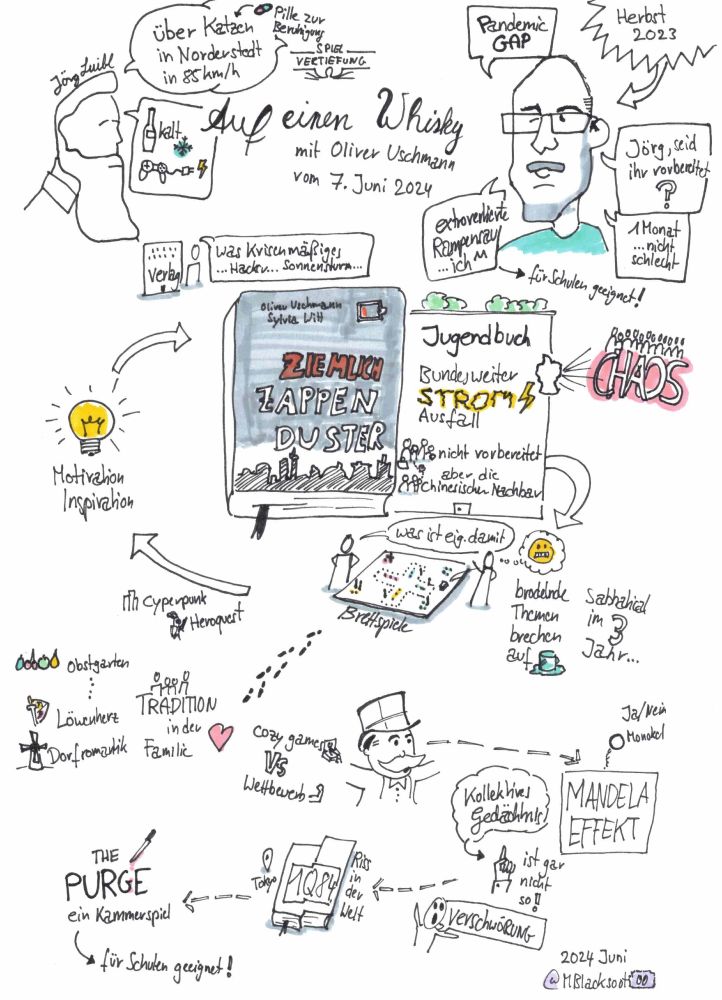 Jörg Luibl
über Katzen
in Norderstedt
in 85km/h
Pille zur
Beruhigung
SPIEL
VERTIEFUNG
kalt
Auf einen Whisky
mit Oliver Uschmann
vom 7. Juni 2024
Pandemic
GAP
Herbst
2023
Jörg, seid
ihr vorbereitet
?
1 Monat
... nicht
schlecht
extrovertierte
Rampensau
... ich
für Schulen geeignet!
Verlag
was Krisenmäßiges
... Hacker... Sonnensturm...
Oliver Uschmann
Sylvia Witt
ZIEMLICH
ZAPPEN
DUSTER
Jugendbuch
Bundesweiter
STROM
Ausfall
nicht vorbereitet
aber die
Chinesischen Nachbar
CHAOS
Motivation
Inspiration
was ist eig. damit
Brettspiele
brodelnde
Themen
brechen
auf
Sabbatical
im
3
Jahr...
Cyperpunk
Heroquest
Obstgarten
Löwenherz
Dorfromantik
TRADITION
in der
Familie
Cozy games
VS
Wettbewerb
Ja/Nein
Monokel
MANDELA
EFFEKT
Kollektives
Gedächtnis
ist gar
nicht
so!!
VERSCHWÖRUNG
Tokyo
1Q84
Riss
in
der
Welt
THE
PURGE
ein Kammerspiel
für Schulen geeignet!
2024 Juni
@MBlacksoot